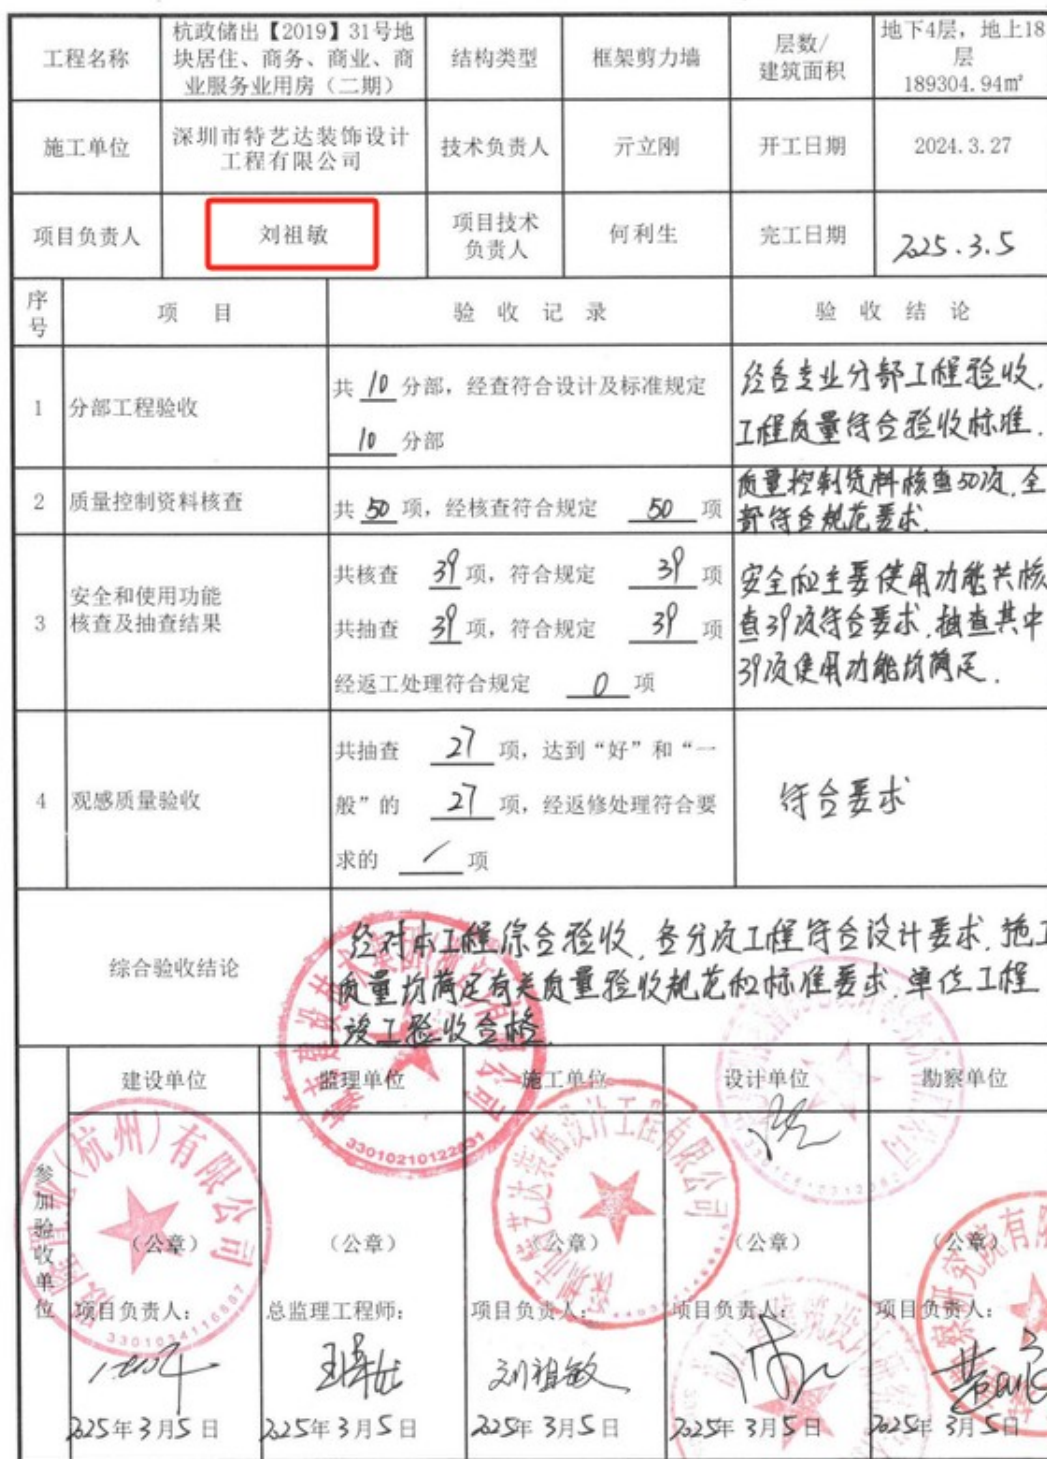 工程名称
杭政储出【2019】31号地
块居住、商务、商业、商
业服务业用房（二期）
结构类型
框架剪力墙
层数/
建筑面积
地下4层，地上18
层
189304.94㎡
施工单位
深圳市特艺达装饰设计
工程有限公司
技术负责人
亓立刚
开工日期
2024.3.27
项目负责人
刘祖敏
项目技术
负责人
何利生
完工日期
2025.3.5
序
号
项 目
验 收 记 录
验 收 结 论
1
分部工程验收
共 10 分部，经查符合设计及标准规定
10 分部
经各专业分部工程验收，
工程质量符合验收标准．
2
质量控制资料核查
共 50 项，经核查符合规定 50 项
质量控制资料核查50项，全
部符合规范要求．
3
安全和使用功能
核查及抽查结果
共核查 39 项，符合规定 39 项
共抽查 39 项，符合规定 39 项
经返工处理符合规定 0 项
安全和主要使用功能共核
查39项符合要求，抽查其中
39项使用功能均满足．
4
观感质量验收
共抽查 27 项，达到“好”和“一
般”的 27 项，经返修处理符合要
求的 / 项
符合要求
综合验收结论
经对本工程综合验收，各分项工程符合设计要求，施工
质量均满足有关质量验收规范和标准要求，单位工程
竣工验收合格．
参加验收单位
建设单位
监理单位
施工单位
设计单位
勘察单位
（杭州）有限公司
（公章）
（公章）
（公章）
（公章）
（公章）
项目负责人：
总监理工程师：
项目负责人：
项目负责人：
项目负责人：
刘祖敏
2025年3月5日
2025年3月5日
2025年3月5日
2025年3月5日
2025年3月5日